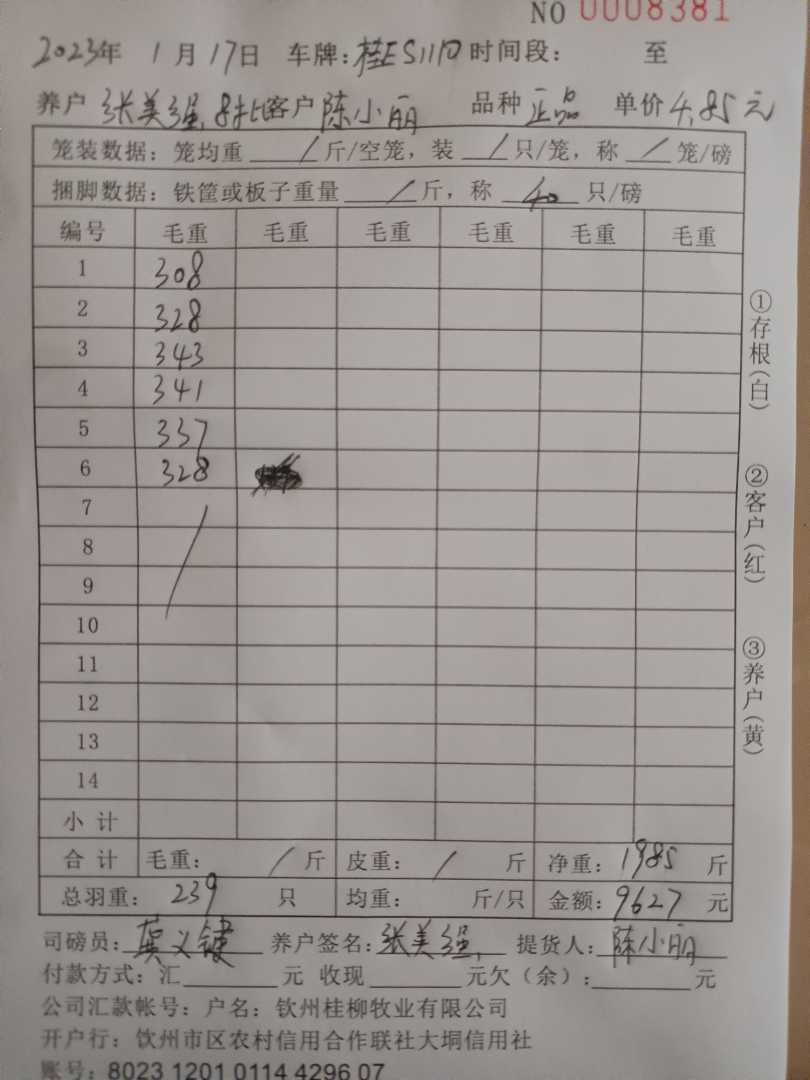 NO 0008381
2023年 1月17日 车牌:桂ES1110 时间段: 至
养户 张美强.8批 客户 陈小丽 品种 正品 单价 4.85 元
笼装数据: 笼均重 / 斤/空笼, 装 / 只/笼, 称 / 笼/磅
捆脚数据: 铁筐或板子重量 / 斤, 称 40 只/磅
编号 毛重 毛重 毛重 毛重 毛重 毛重
1 308
2 328
3 343
4 341
5 337
6 328
7
8
9
10
11
12
13
14
小计
合计 毛重: / 斤 皮重: / 斤 净重: 1985 斤
总羽重: 239 只 均重: 斤/只 金额: 9627 元
司磅员: 莫义键 养户签名: 张美强. 提货人: 陈小丽
付款方式: 汇 元 收现 元欠(余): 元
公司汇款帐号: 户名: 钦州桂柳牧业有限公司
开户行: 钦州市区农村信用合作联社大垌信用社
账号: 8023 1201 0114 4296 07
①存根(白)
②客户(红)
③养户(黄)